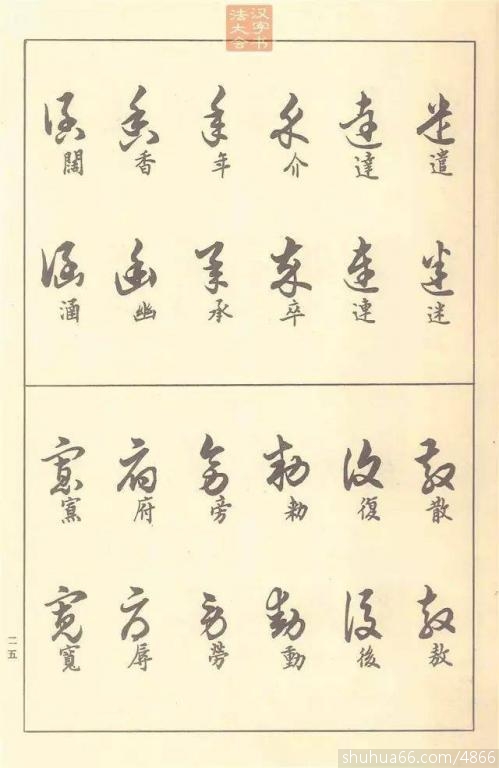 汉字书
法大会
遣 迷
達 連
介 卒
年 承
香 幽
闊 涵
散 敖
復 後
勅 動
旁 勞
府 辱
寡 寬
二五
shuhua66.com/4866